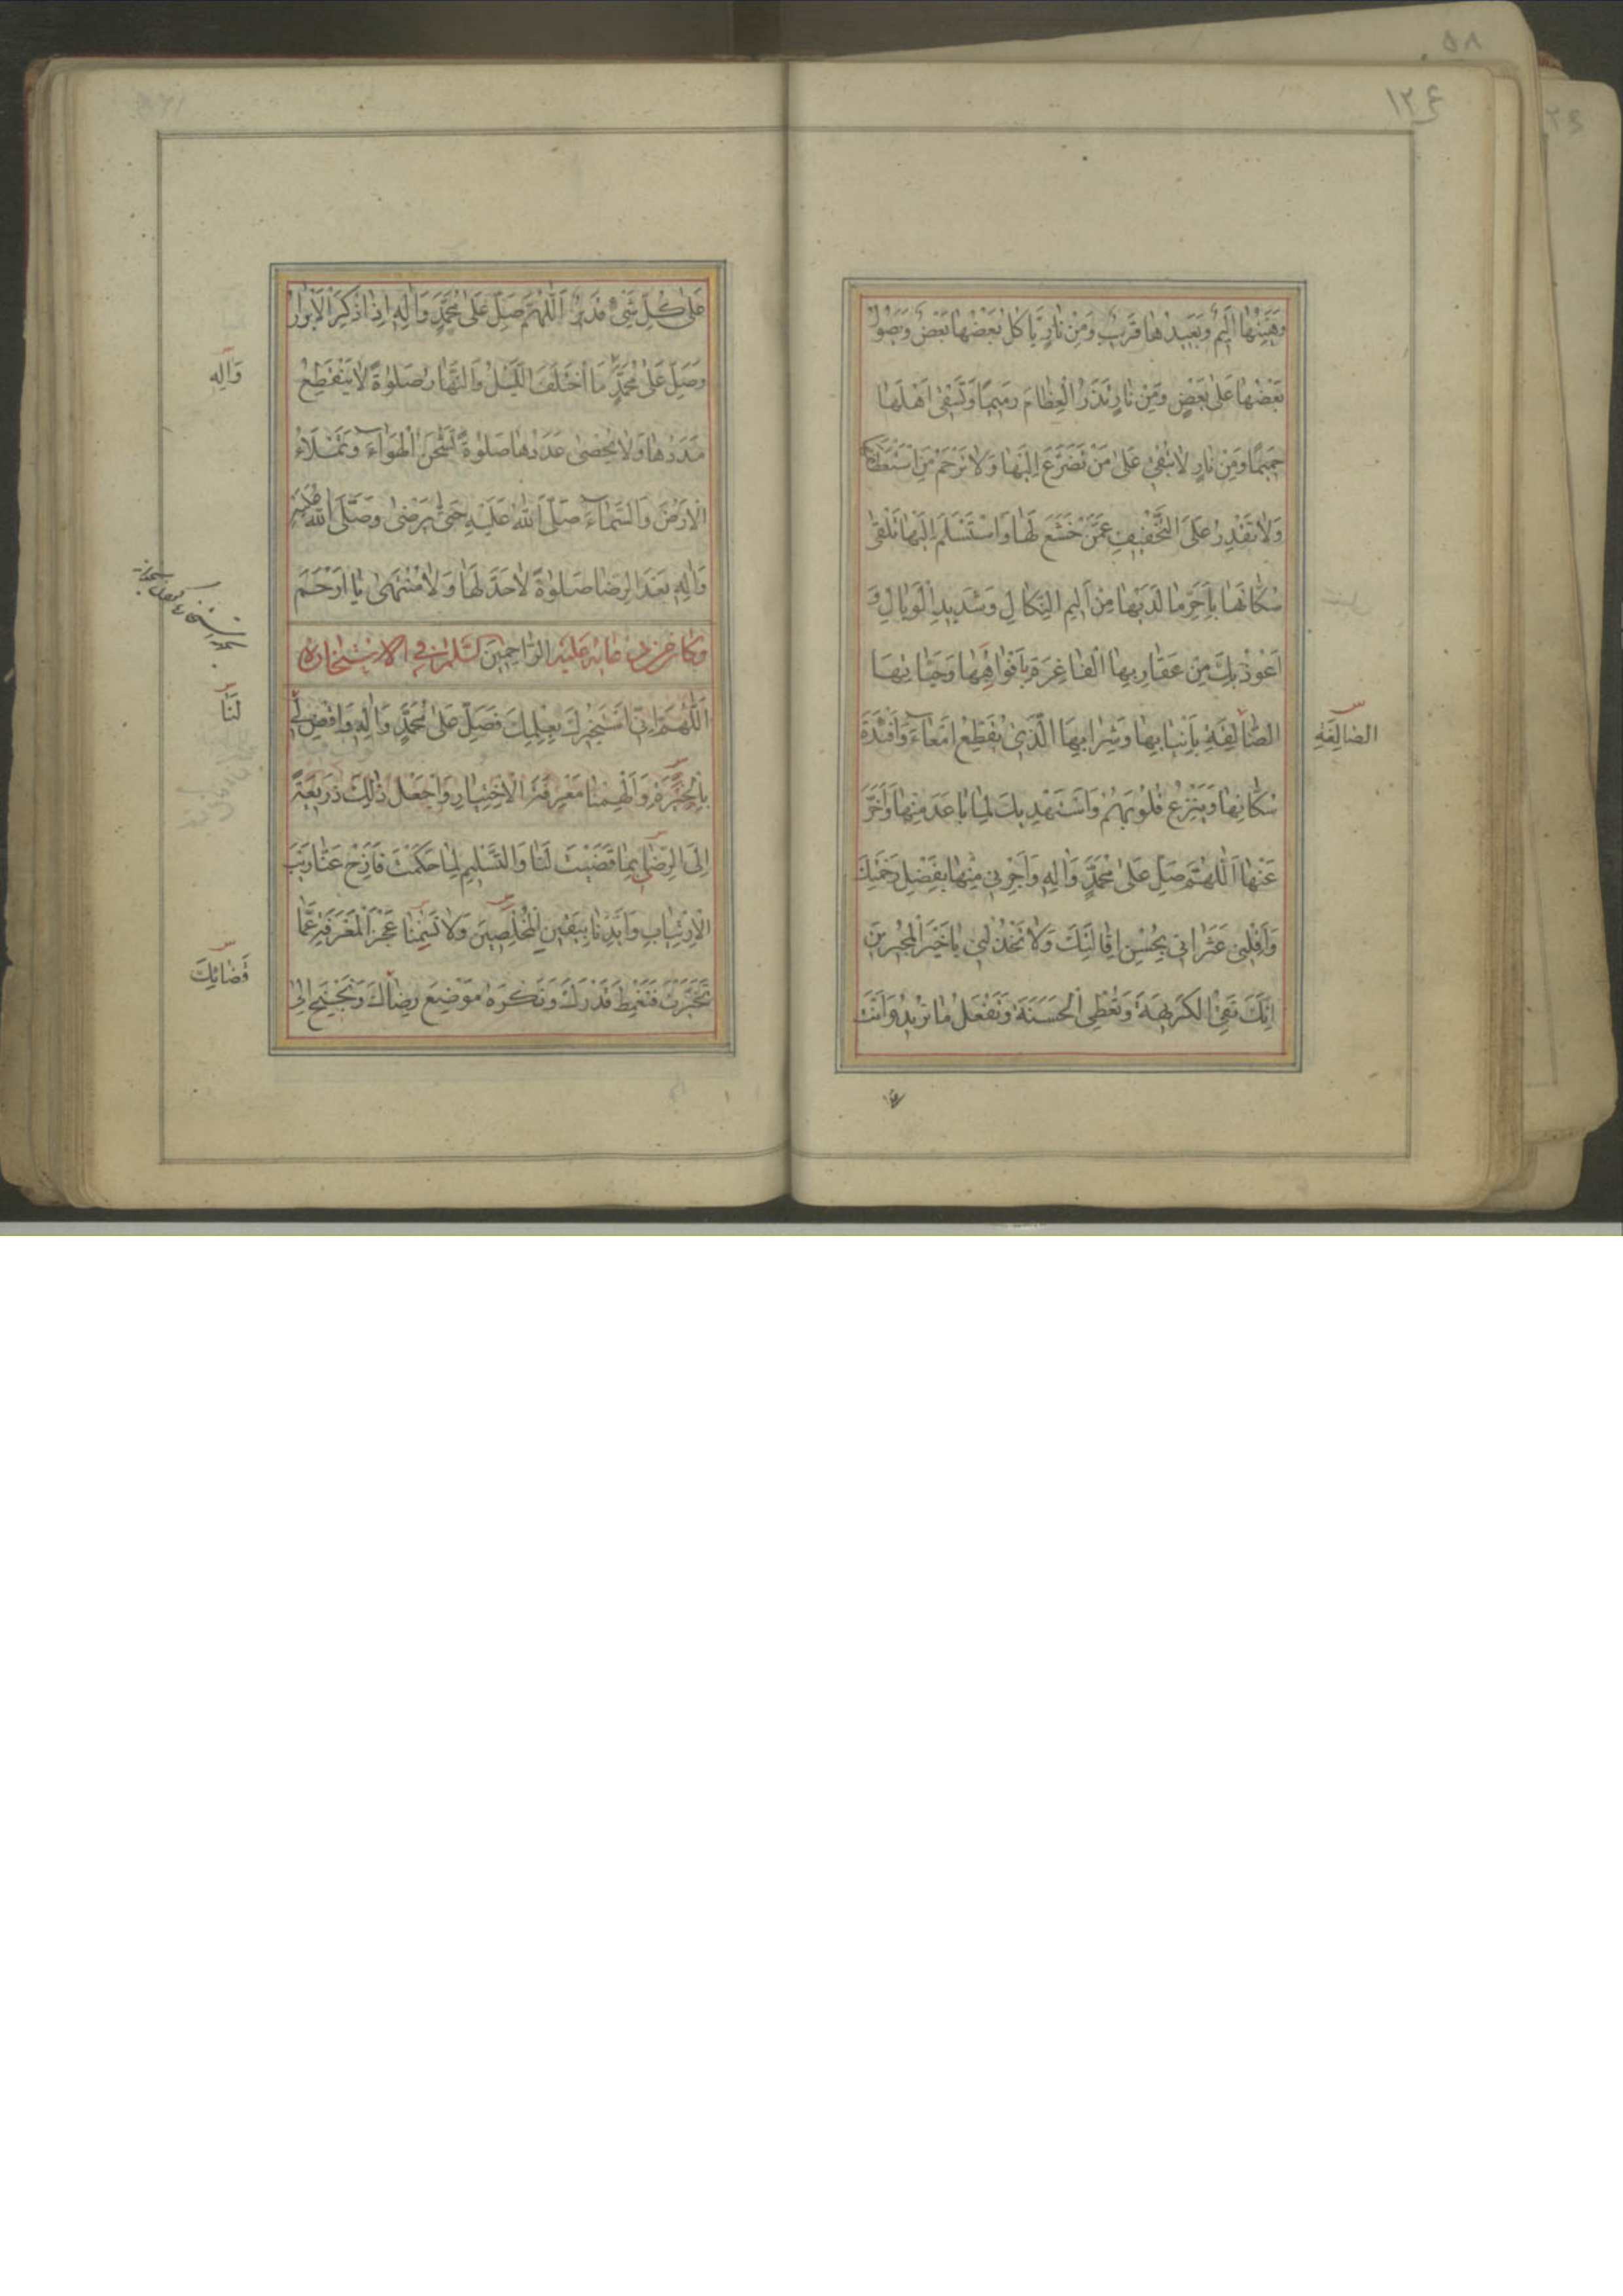 ١٢٤
وَهَيِّنُها اَليمٌ وَبَعيدُها قَريبٌ وَمِنْ نارٍ يَاكُلُ بَعْضَها بَعْضٌ وَيَصُولُ
بَعْضُها عَلى بَعْضٍ وَمِنْ نارٍ تَذَرُ الْعِظامَ رَميمًا وَتَسْقي اَهْلَها
حَميمًا وَمِنْ نارٍ لا تُبْقي عَلى مَنْ تَضَرَّعَ اِلَيْها وَلا تَرْحَمُ مَنِ اسْتَعْطَفَها
وَلا تَقْدِرُ عَلَى التَّخْفيفِ عَمَّنْ خَشَعَ لَها وَاسْتَسْلَمَ اِلَيْها تَلْقى
سُكّانَها بِاَحَرِّ ما لَدَيْها مِنْ اَليمِ النَّكالِ وَشَديدِ الْوَبالِ وَ
اَعُوذُ بِكَ مِنْ عَقارِبِها الْفاغِرَةِ بِاَفْواهِها وَحَيّاتِهَا
الصّالِقَةِ بِاَنْيابِها وَشَرابِهَا الَّذي يُقَطِّعُ اَمْعاءَ وَاَفْئِدَةَ
الصالِقَةِ
سُكّانِها وَيَنْزِعُ قُلُوبَهُمْ وَاَسْتَهْديكَ لِما باعَدَ مِنْها وَاَخَّرَ
عَنْها اَللّهُمَّ صَلِّ عَلى مُحَمَّدٍ وَالِهِ وَاَجِرْني مِنْها بِفَضْلِ رَحْمَتِكَ
وَاَقِلْني عَثَراتي بِحُسْنِ اِقالَتِكَ وَلا تَخْذُلْني يا خَيْرَ الْمُجيرينَ
اِنَّكَ تَقِي الْكَريهَةَ وَتُعْطِي الْحَسَنَةَ وَتَفْعَلُ ما تُريدُ وَاَنْتَ
عَلى كُلِّ شَيْءٍ قَديرٌ اَللّهُمَّ صَلِّ عَلى مُحَمَّدٍ وَالِهِ اِذا ذُكِرَ الْاَبْرارُ
وَصَلِّ عَلى مُحَمَّدٍ مَا اخْتَلَفَ اللَّيْلُ وَالنَّهارُ صَلوةً لا يَنْقَطِعُ
وَالِهِ
مَدَدُها وَلا يُحْصى عَدَدُها صَلوةً تَشْحَنُ الْهَواءَ وَتَمْلَاءُ
الْاَرْضَ وَالسَّماءَ صَلَّى اللهُ عَلَيْهِ حَتّى يَرْضى وَصَلَّى اللهُ عَلَيْهِ
وَالِهِ بَعْدَ الرِّضا صَلوةً لا حَدَّ لَها وَلا مُنْتَهى يا اَرْحَمَ
وَكانَ مِنْ دُعائِهِ عَلَيْهِ الرّاحِمينَ السَّلامُ فِي الْاِسْتِخارَةِ
اَللّهُمَّ اِنّي اَسْتَخيرُكَ بِعِلْمِكَ فَصَلِّ عَلى مُحَمَّدٍ وَالِهِ وَاقْضِ لي
لَنا
بِالْخِيَرَةِ وَاَلْهِمْنا مَعْرِفَةَ الْاِخْتِيارِ وَاجْعَلْ ذلِكَ ذَريعَةً
اِلَى الرِّضا بِما قَضَيْتَ لَنا وَالتَّسْليمِ لِما حَكَمْتَ فَاَزِحْ عَنّا رَيْبَ
الْاِرْتِيابِ وَاَيِّدْنا بِيَقينِ الْمُخْلِصينَ وَلا تَسُمْنا عَجْزَ الْمَعْرِفَةِ عَمّا
قَضائِكَ
تَخَيَّرْتَ فَنَغْمِطَ قَدْرَكَ وَنَكْرَهَ مَوْضِعَ رِضاكَ وَنَجْنَحَ اِلَى